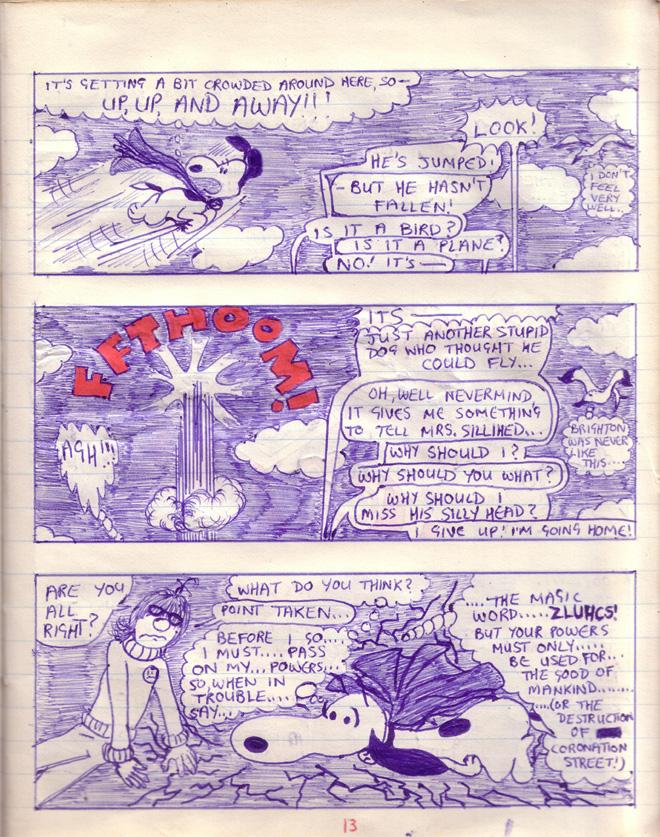 IT'S GETTING A BIT CROWDED AROUND HERE, SO—
UP, UP, AND AWAY!!!
LOOK!
HE'S JUMPED!
– BUT HE HASN'T
FALLEN!
IS IT A BIRD?
IS IT A PLANE?
NO! IT'S —
I DON'T
FEEL
VERY
WELL..
FFTHOOM!
AGH!!!
ITS ——
JUST ANOTHER STUPID
DOG WHO THOUGHT HE
COULD FLY...
OH, WELL NEVERMIND,
IT GIVES ME SOMETHING
TO TELL MRS. SILLIHED...
WHY SHOULD I?
WHY SHOULD YOU WHAT?
WHY SHOULD I
MISS HIS SILLY HEAD?
I GIVE UP! I'M GOING HOME!
BRIGHTON
WAS NEVER
LIKE
THIS....
ARE YOU
ALL
RIGHT?
WHAT DO YOU THINK?
POINT TAKEN...
BEFORE I SO....
I MUST.... PASS
ON MY... POWERS....
SO, WHEN IN
TROUBLE....
SAY...
.... THE MAGIC
WORD..... ZLUHCS!
BUT YOUR POWERS
MUST ONLY.....
BE USED FOR...
THE GOOD OF
MANKIND........
....(OR THE
DESTRUCTION
OF
CORONATION
STREET!)
13